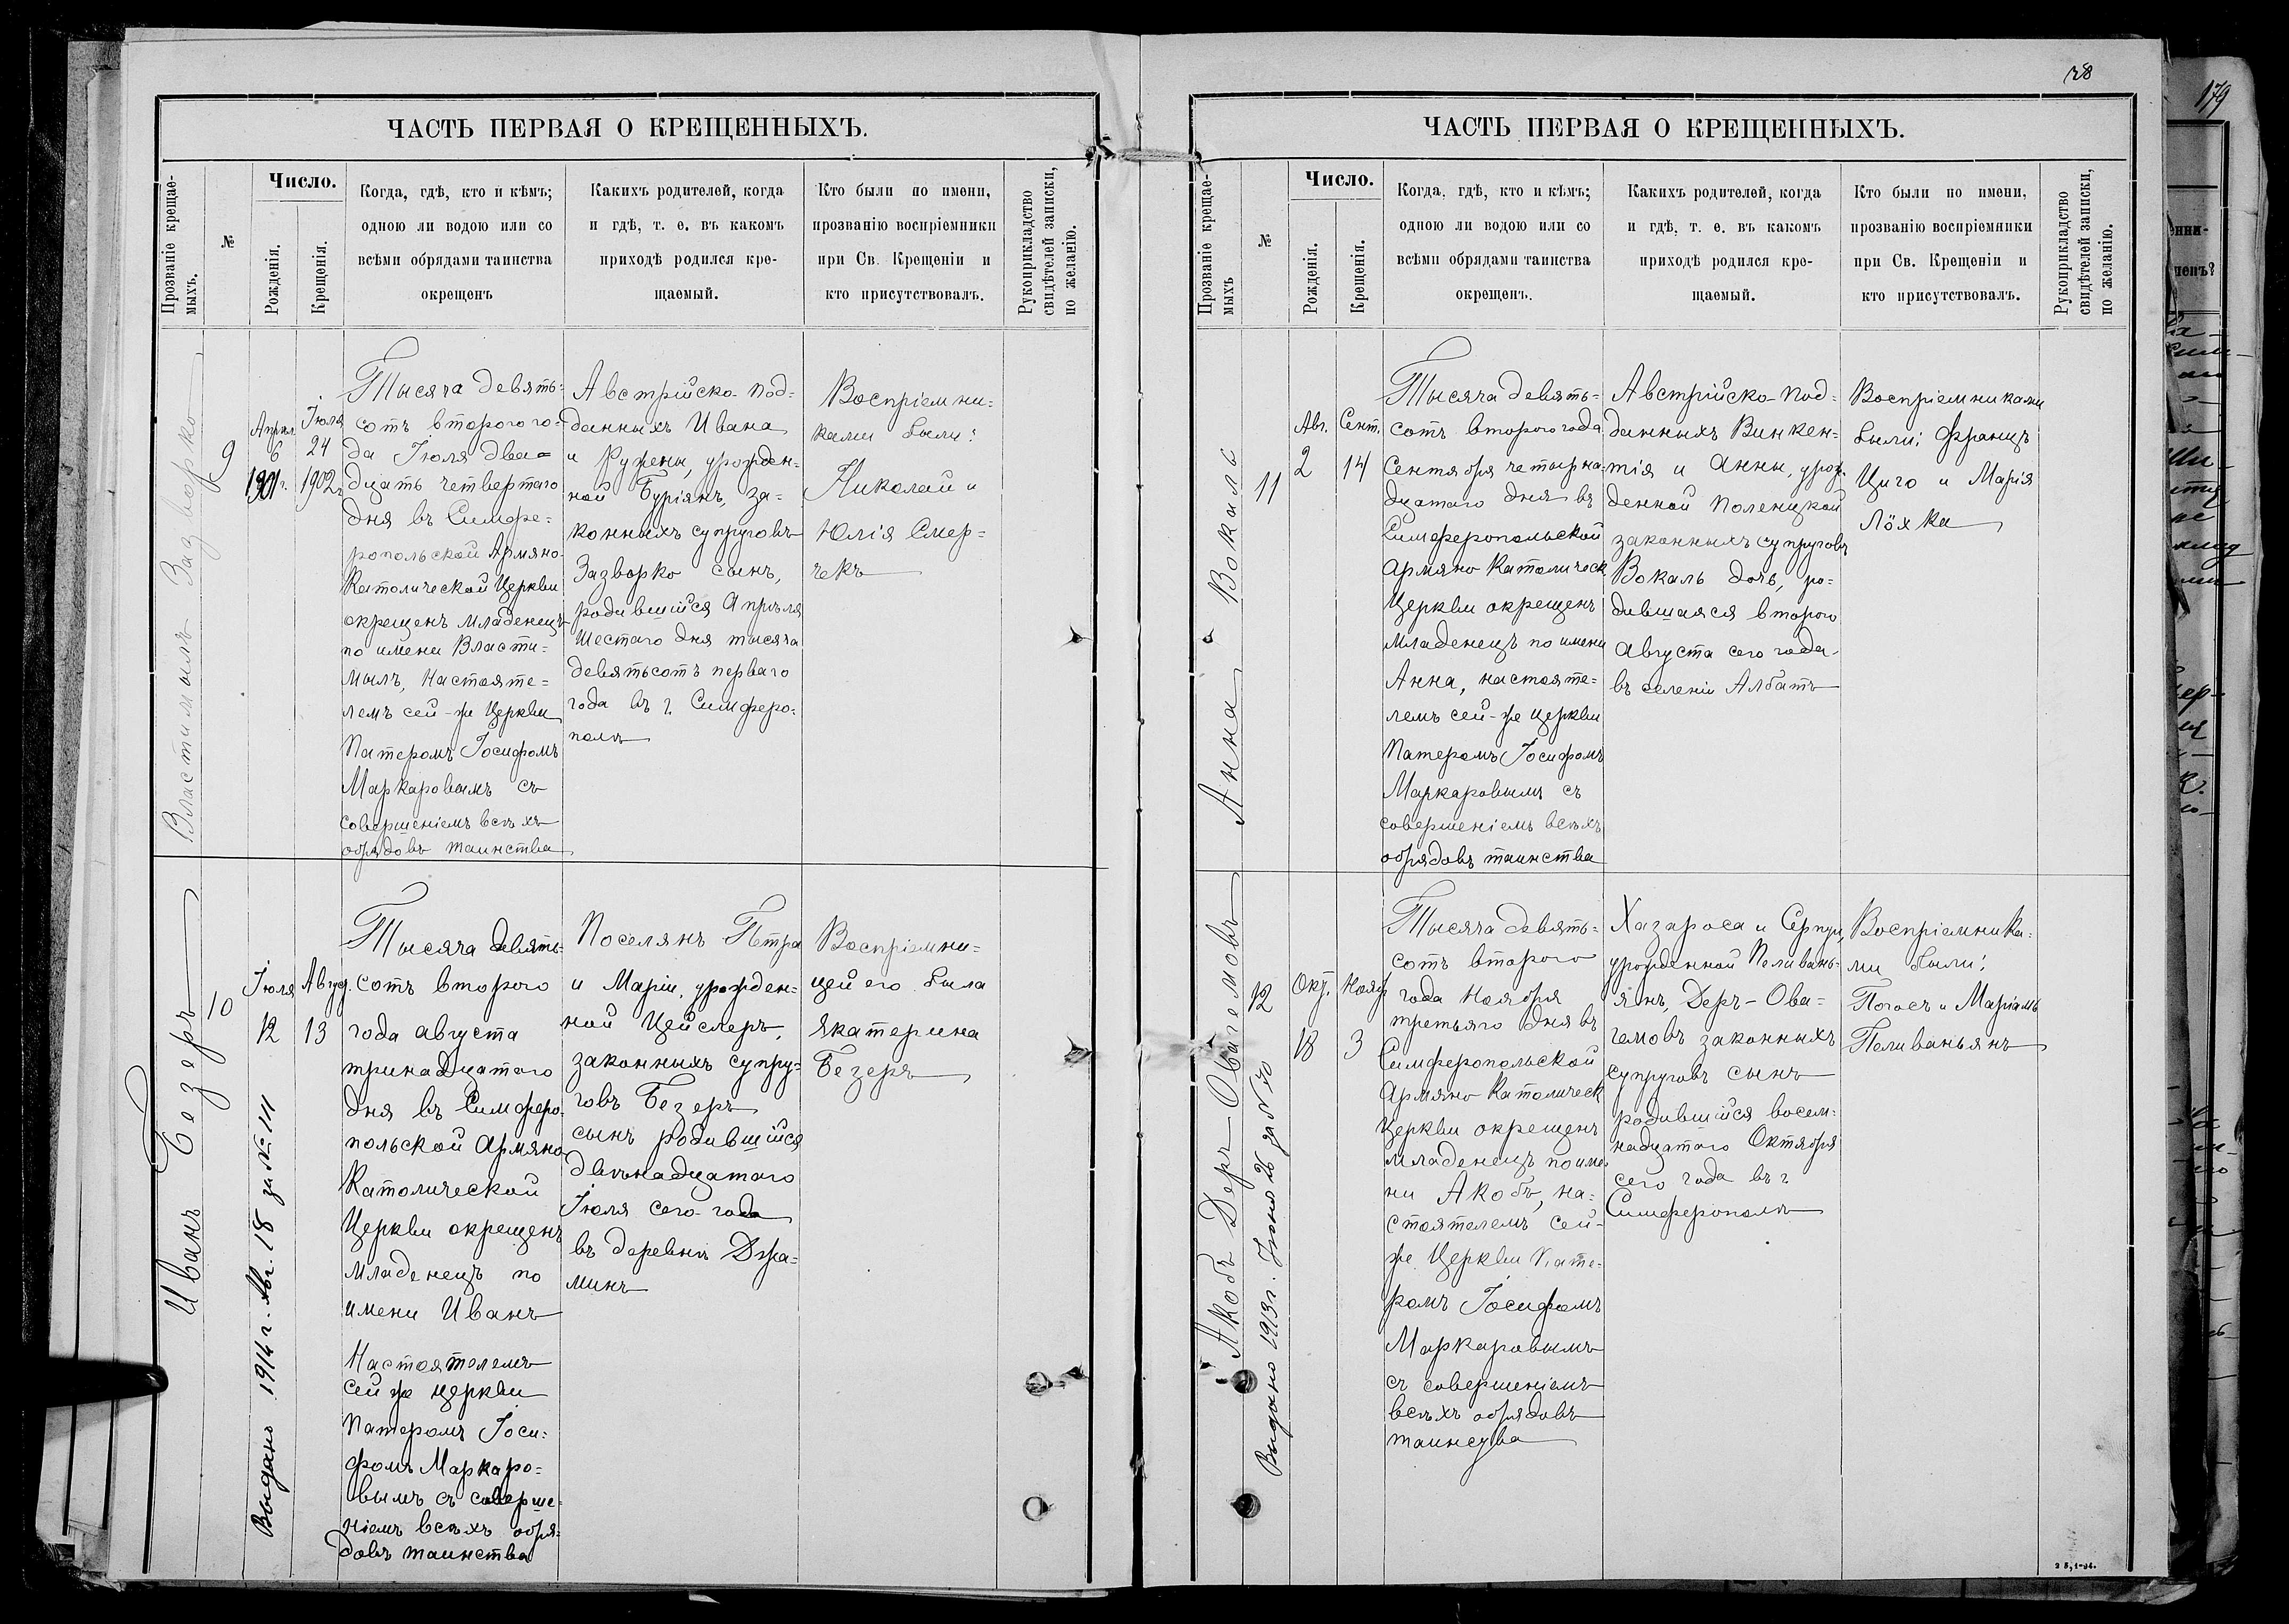 178
179
ЧАСТЬ ПЕРВАЯ О КРЕЩЕННЫХЪ.
Прозваніе крещае-
мыхъ.
№
Число.
Рожденія.
Крещенія.
Когда, гдѣ, кто и кѣмъ;
одною ли водою или со
всѣми обрядами таинства
окрещенъ
Какихъ родителей, когда
и гдѣ, т. е. въ какомъ
приходѣ родился кре-
щаемый.
Кто были по имени,
прозванію воспріемники
при Св. Крещеніи и
кто присутствовалъ.
Рукоприкладство
свидѣтелей записки,
по желанію.
Властимилъ Заворко
9
Апрѣл.
6
1901 г.
Іюля
24
1902 г.
Тысяча девять-
сотъ второго го-
да Іюля два-
дцать четвертаго
дня въ Симфе-
ропольской Армяно-
Католической Церкви
окрещенъ младенецъ
по имени Власти-
милъ, Настояте-
лемъ сей-же Церкви
Патеромъ Іосифомъ
Маркаровымъ съ
совершеніемъ всѣхъ
обрядовъ таинства
Австрійско-под-
данныхъ Ивана
и Ружены, урожден-
ной Буріянъ, за-
конныхъ супруговъ
Заворко сынъ,
родившійся Апрѣля
шестаго дня тысяча
девятьсотъ перваго
года въ г. Симферо-
полѣ
Воспріемни-
ками были:
Николай и
Юлія Смер-
чекъ
Иванъ Безеръ
10
Выдано 1914 г. Авг. 18 за № 111
Іюля
12
Август.
13
Тысяча девять-
сотъ второго
года августа
тринадцатаго
дня въ Симферо-
польской Армяно
Католической
Церкви окрещенъ
младенецъ по
имени Иванъ
Настоятелемъ
сей же церкви
Патеромъ Іоси-
фомъ Маркаро-
вымъ съ соверше-
ніемъ всѣхъ обря-
довъ таинства
Поселянъ Петра
и Маріи, урожден-
ной Цейслеръ,
законныхъ супру-
говъ Безеръ
сынъ родившійся
двѣнадцатаго
Іюля сего года
въ деревнѣ Джа-
минъ
Воспріемни-
цей его была
Екатерина
Безеръ
ЧАСТЬ ПЕРВАЯ О КРЕЩЕННЫХЪ.
Прозваніе крещае-
мыхъ
№
Число.
Рожденія.
Крещенія.
Когда, гдѣ, кто и кѣмъ;
одною ли водою или со
всѣми обрядами таинства
окрещенъ.
Какихъ родителей, когда
и гдѣ, т. е. въ какомъ
приходѣ родился кре-
щаемый.
Кто были по имени,
прозванію воспріемники
при Св. Крещеніи и
кто присутствовалъ.
Рукоприкладство
свидѣтелей записки,
по желанію.
Анна Вокаль
11
Авг.
2
Сент.
14
Тысяча девять-
сотъ второго года
Сентября четырна-
дцатаго дня въ
Симферопольской
Армяно Католическ.
Церкви окрещенъ
младенецъ по имени
Анна, настояте-
лемъ сей-же церкви
Патеромъ Іосифомъ
Маркаровымъ съ
совершеніемъ всѣхъ
обрядовъ таинства
Австрійско-под-
данныхъ Викен-
тія и Анны, урож-
денной Поленцкой
законныхъ супруговъ
Вокаль дочь, ро-
дившаяся второго
Августа сего года
въ селеніи Албатъ
Воспріемниками
были: Францъ
Циго и Марія
Лёхка
Акобъ Деръ-Овагемовъ
12
Выдано 1913 г. Іюня 26 за № 70
Окт.
18
Нояб.
3
Тысяча девять-
сотъ второго
года Ноября
третьяго дня въ
Симферопольской
Армяно Католическ.
Церкви окрещенъ
младенецъ по име-
ни Акобъ, на-
стоятелемъ сей-
же Церкви Пате-
ромъ Іосифомъ
Маркаровымъ
съ совершеніемъ
всѣхъ обрядовъ
таинства
Хазароса и Серпуи,
урожденной Пеливань-
янъ, Деръ-Ова-
гемовъ законныхъ
супруговъ сынъ
родившійся восем-
надцатаго Октября
сего года въ г.
Симферополѣ
Воспріемника-
ми были:
Погосъ и Маріамъ
Пеливаньянъ